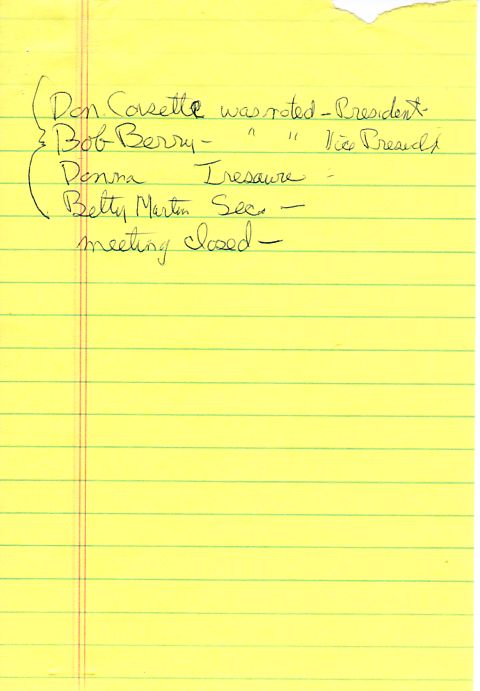 Don Corsette was voted - President -
Bob Berry - " " Vice President
Donna Tresaure -
Betty Martin Sec. -
meeting closed -